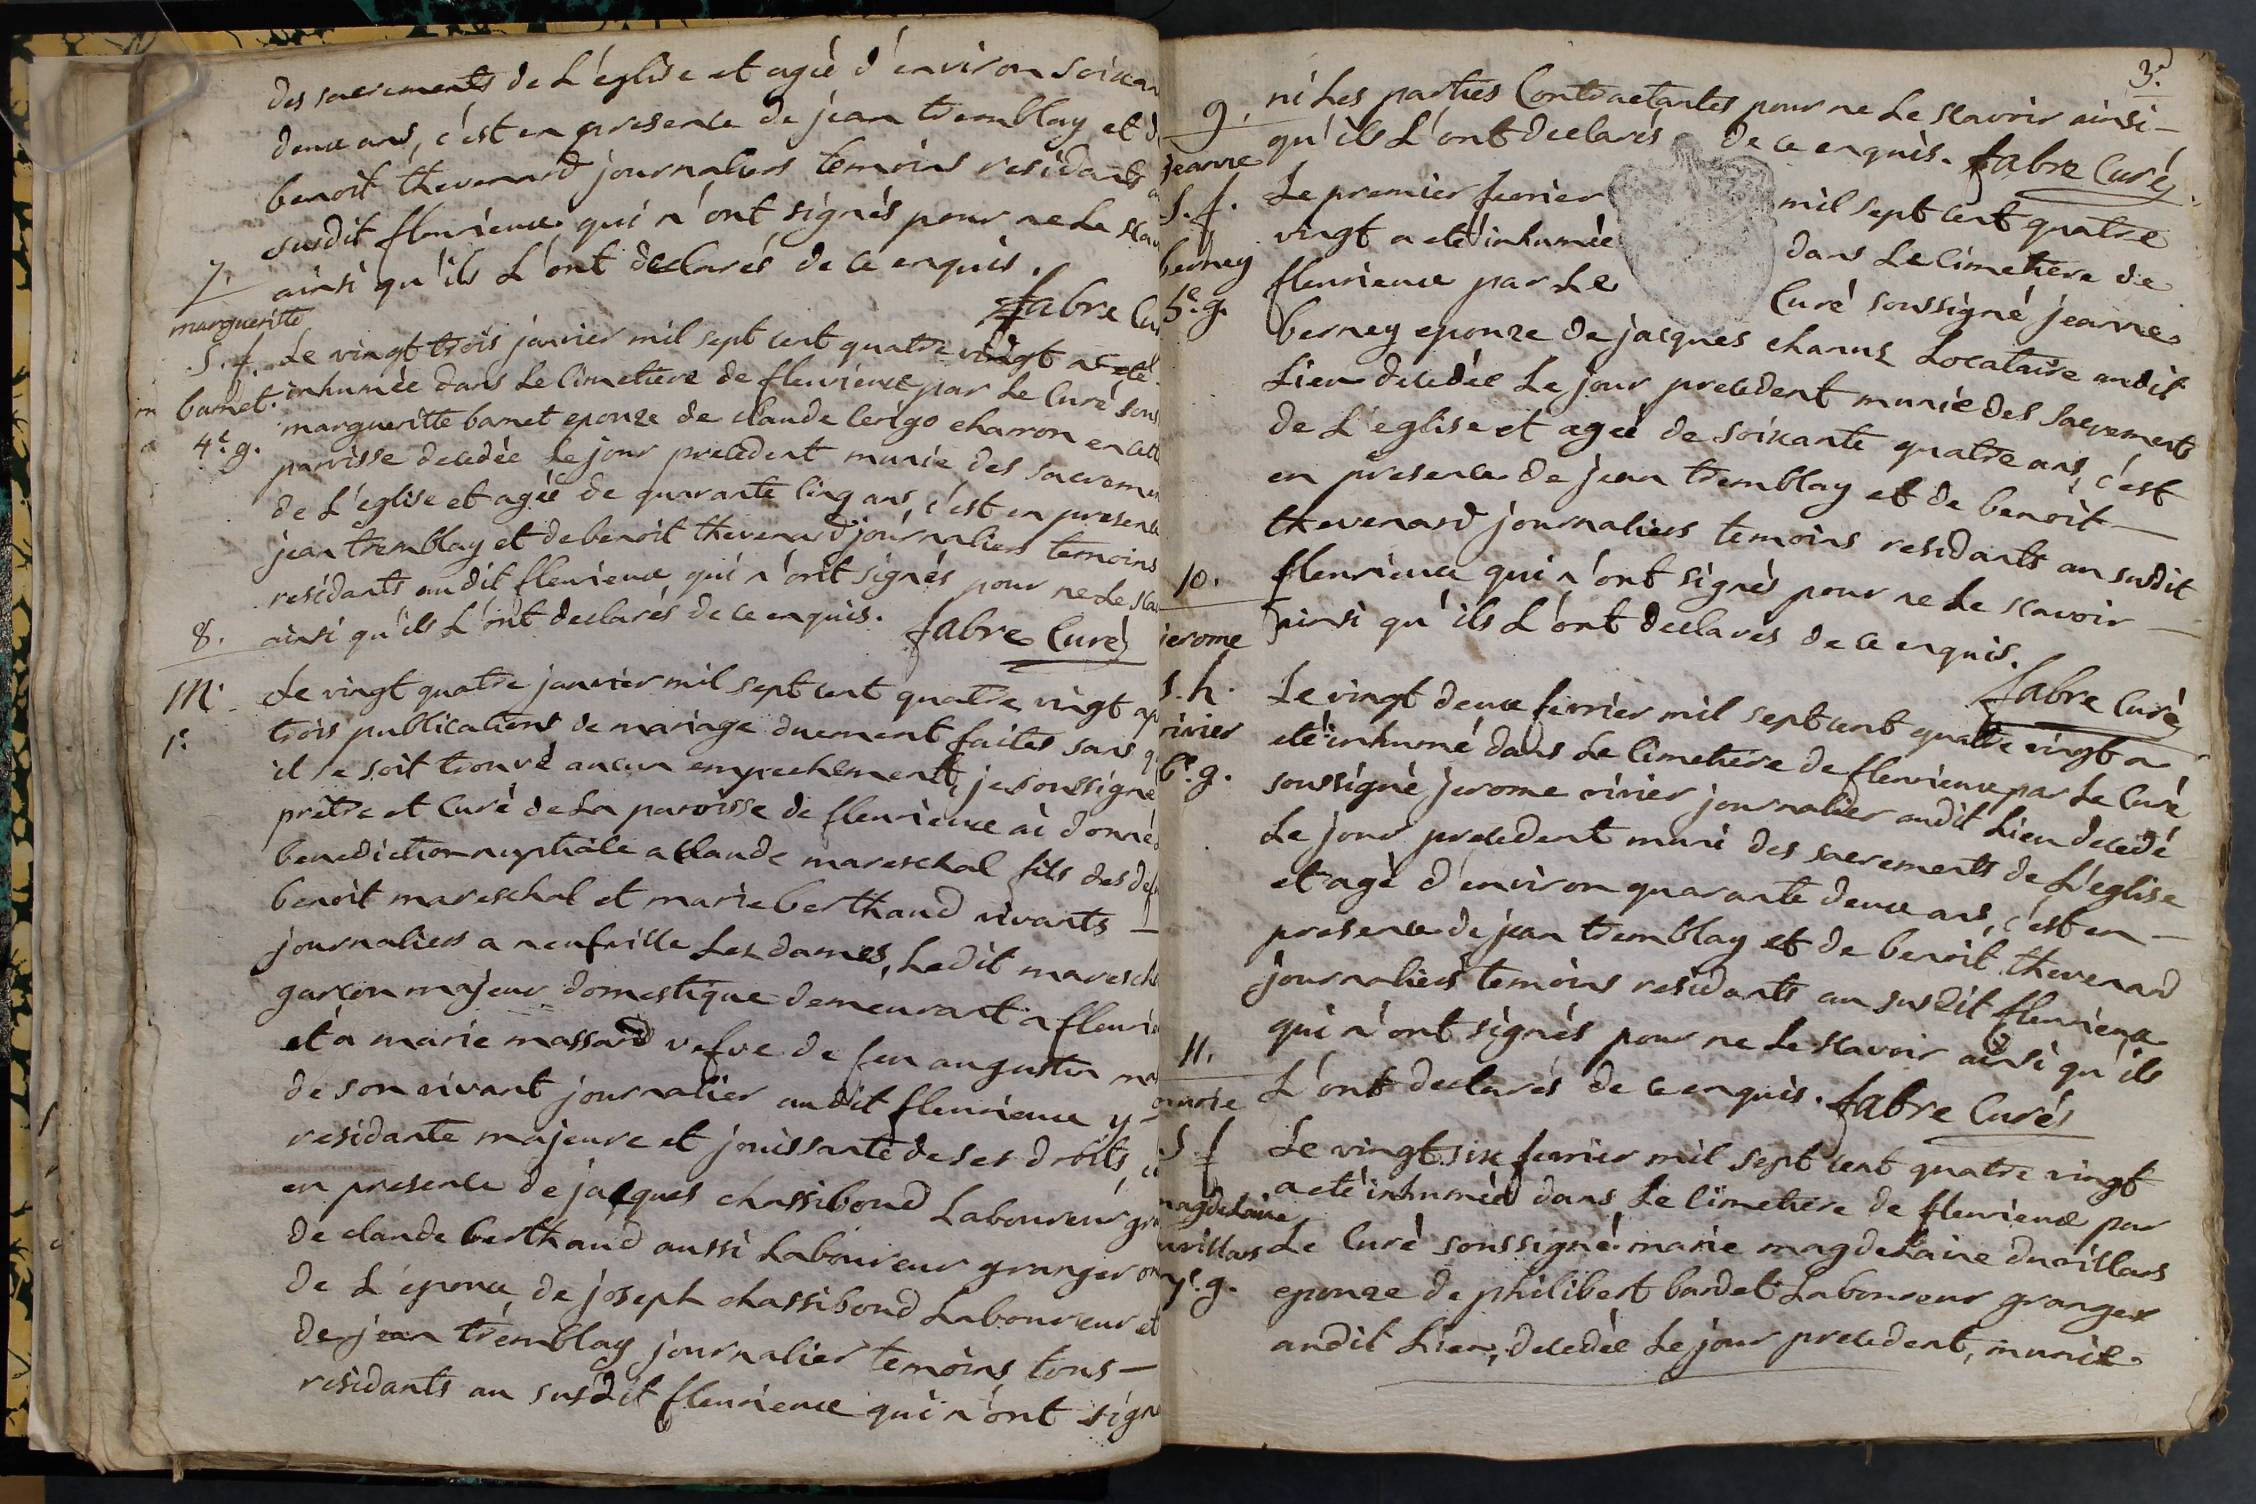 des sacrements de L'église et agée d'environ soixan
deux ans, c'est en presence de jean tremblay et d
benoit thevenard journaliers temoins residants a
susdit fleurieux qui n'ont signés pour ne Le scav
7.
ainsi qu'ils L'ont declarés de ce enquis.
fabre Cu
margueritte
S. f. Le vingt trois janvier mil sept cent quatre vingt a eté
bamet. inhumée dans Le Cimetiere de fleurieux par Le Curé sous
4e. g. margueritte bamet epouze de claude Cerigo charron en cett
parrisse decedée Le jour precedent munie des sacremen
de L'eglise et agée de quarante Cinq ans, c'est en presence
jean tremblay et de benoit thevenard journaliers temoins
residants audit fleurieux qui n'ont signés pour ne Le sca
8. ainsi qu'ils L'ont declarés de ce enquis. fabre Curé
M. Le vingt quatre janvier mil sept cent quatre vingt ap
1e. trois publications de mariage duement faites sans q
il se soit trouvé aucun empechement, je soussigné
prètre et Curé de La paroisse de fleurieux ai donné
benediction nuptiale a Claude mareschal fils des def
benoit mareschal et marie berthaud vivants —
journaliers a neufville Les dames, Ledit maresch
garçon majeur domestique demeurant a fleurie
et a marie massard vefve de feu augustin ma
de son vivant journalier audit fleurieux y —
residante majeure et jouissante de ses droits, c
en presence de jacques chassiboud Laboureur gra
de claude berthaud aussi Laboureur granger on
de L'epoux, de joseph chassiboud Laboureur et
de jean tremblay journalier temoins, tous —
residants au susdit fleurieux qui n'ont signé
3e.
ni Les parties Contractantes pour ne Le scavoir ainsi —
9. qu'ils L'ont declarés de ce enquis. fabre Curé
jeanne
S. f. Le premier fevrier mil sept cent quatre
berney vingt a eté inhumée dans Le Cimetiere de
5e. g. fleurieux par Le Curé soussigné jeanne
berney epouze de jacques charuz Locataire audit
Lieu decedée Le jour precedent munie des sacrements
de L'eglise et agée de soixante quatre ans, c'est
en presence de jean tremblay et de benoit —
thevenard journaliers temoins residants au susdit
10. fleurieux qui n'ont signés pour ne Le scavoir —
ainsi qu'ils L'ont declarés de ce enquis.
jerome
fabre Curé
s. h. Le vingt deux fevrier mil sept cent quatre vingt a
rivier eté inhumé dans Le Cimetiere de fleurieux par Le Curé
6e. g. soussigné jerome rivier journalier audit Lieu decedé
Le jour precedent muni des sacrements de L'eglise
et agé d'environ quarante deux ans, c'est en —
presence de jean tremblay et de benoit thevenard
journaliers temoins residants au susdit fleurieux
qui n'ont signés pour ne Le scavoir ainsi qu'ils
11. L'ont declarés de ce enquis. fabre Curé
marie
S. f Le vingt six fevrier mil sept cent quatre vingt
a eté inhumée dans Le Cimetiere de fleurieux par
magdelaine
uvillars Le Curé soussigné marie magdelaine duvillars
7e. g. epouze de philibert bardet Laboureur granger
audit Lieu, decedée Le jour precedent, munie